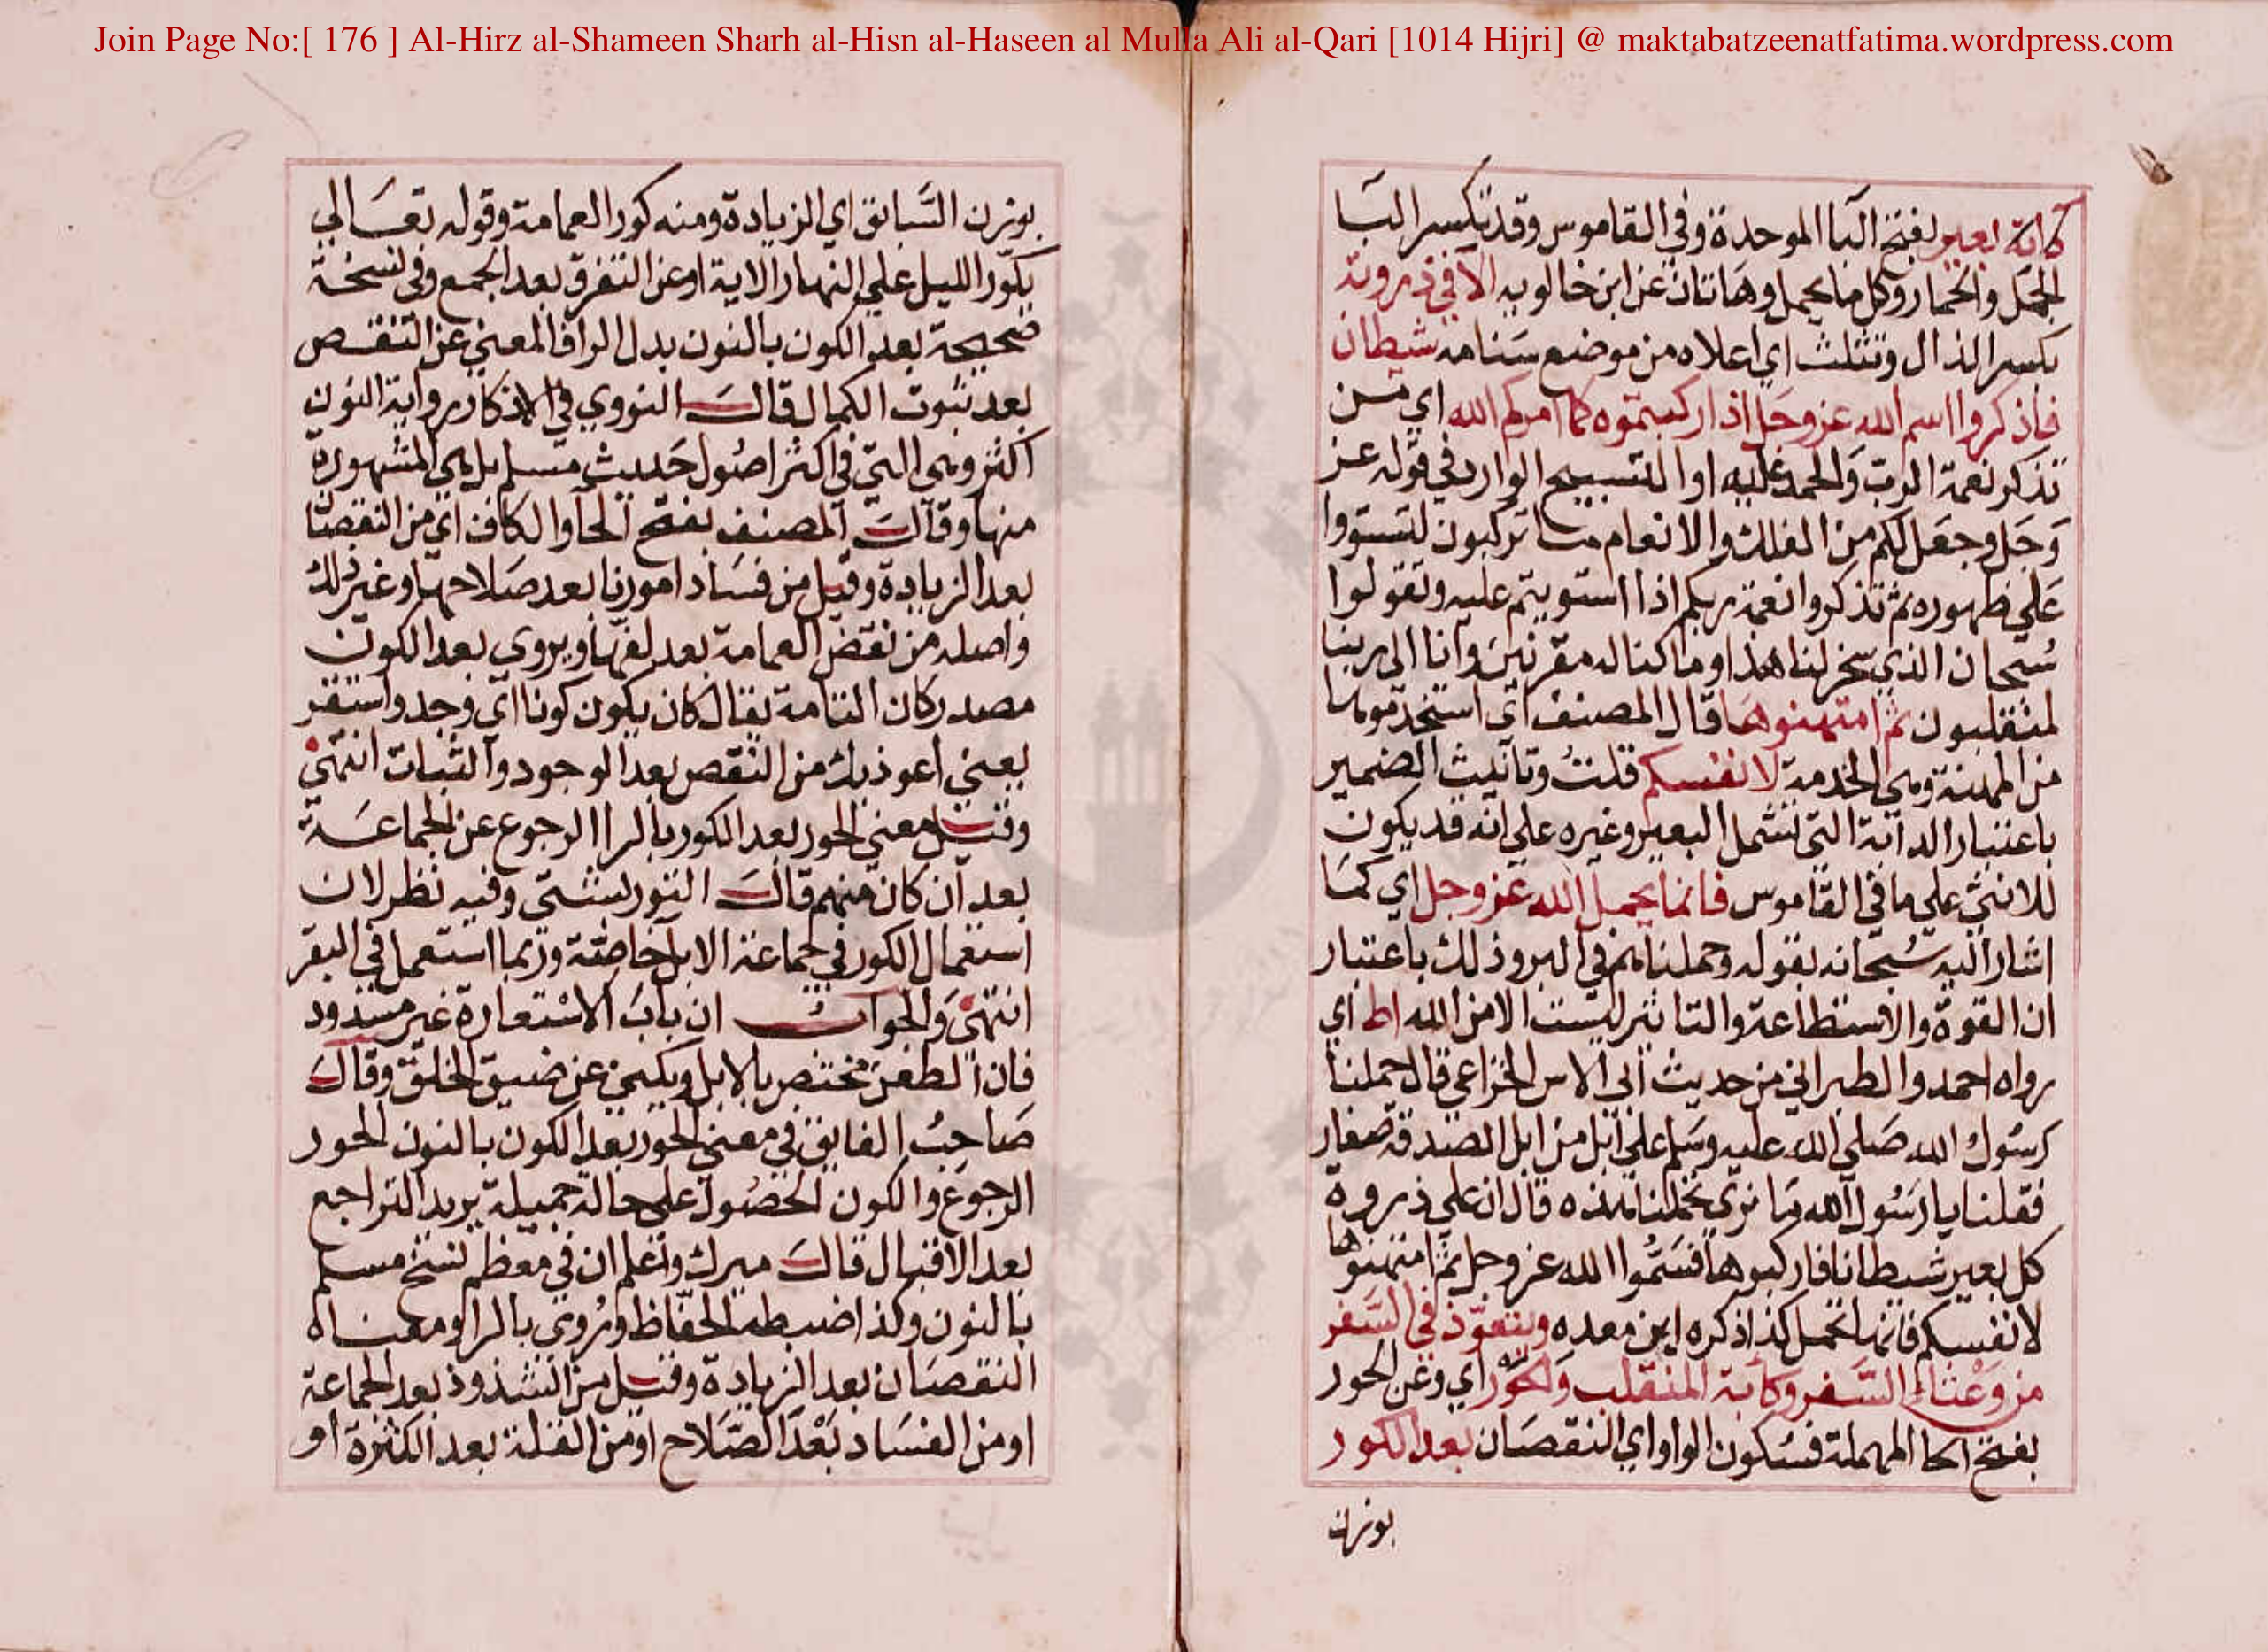 Join Page No:[ 176 ] Al-Hirz al-Shameen Sharh al-Hisn al-Haseen al Mulla Ali al-Qari [1014 Hijri] @ maktabatzeenatfatima.wordpress.com
بعير بفتح البا الموحدة وفي القاموس وقد تكسر البا
الجمل والحمار وكل ما يحمل وهاتان عن ابن خالويه الا في ذروته
بكسر الذال وتثلث اي اعلاه من موضع سنامه شيطان
فاذكروا اسم الله عز وجل اذا ركبتموه كما امركم الله اي من
تذكر نعمة الرب والحمد عليه او التسبيح الوارد في قوله عز
وجل وجعل لكم من الفلك والانعام ما تركبون لتستووا
علي ظهوره ثم تذكروا نعمة ربكم اذا استويتم عليه وتقولوا
سبحان الذي سخر لنا هذا وما كنا له مقرنين وانا الي ربنا
لمنقلبون ثم امتهنوها قال المصنف اي استخدموها
من المهنة وهي الخدمة لانفسكم قلت وتانيث الضمير
باعتبار الدابة التي تشمل البعير وغيره علي انه قد يكون
للانثي علي ما في القاموس فانما يحمل الله عز وجل اي كما
اشار اليه سبحانه بقوله وحملناهم في البر وذلك باعتبار
ان القوة والاستطاعة والتاثير ليست الا من الله اط اي
رواه احمد والطبراني من حديث ابي الاس الخزاعي قال حملنا
رسول الله صلي الله عليه وسلم علي ابل من ابل الصدقة صغار
فقلنا يا رسول الله ما نري تحملنا هذه قال ان علي ذروة
كل بعير شيطانا فاركبوها فسموا الله عز وجل ثم امتهنوها
لانفسكم فانها تحمل كذا ذكره ابن معده ويتعوذ في السفر
من وعثاء السفر وكابة المنقلب والحور اي وعن الحور
بفتح الحا المهملة فسكون الواو اي النقصان بعد الكور
بوزن
بوزن السابق اي الزيادة ومنه كور العمامة وقوله تعالي
يكور الليل علي النهار الاية او عن التفرق بعد الجمع وفي نسخة
صحيحة بعد الكون بالنون بدل الرا فالمعني عن التنقص
بعد ثبوت الكمال قال النووي في الاذكار رواية النون
اكثر وهي التي في اكثر اصول حديث مسلم بل هي المشهورة
منها وقال المصنف بفتح الحا والكاف اي من النقصان
بعد الزيادة وقيل من فساد امورنا بعد صلاحها وغير ذلك
واصله من نقض العمامة بعد لفها ويروي بعد الكون
مصدر كان التامة يقال كان يكون كونا اي وجد واستقر
يعني اعوذ بك من النقص بعد الوجود والثبات انتهي
وقيل معني الحور بعد الكور بالرا الرجوع عن الجماعة
بعد ان كان منهم قال التوربشتي وفيه نظر لان
استعمال الكور في جماعة الابل خاصة وربما استعمل في البقر
انتهي والجواب ان باب الاستعارة غير مسدود
فان العطن مختص بالابل ويكني عن ضيق الخلق وقال
صاحب الفايق في معني الحور بعد الكون بالنون الحور
الرجوع والكون الحصول علي حالة جميلة يريد التراجع
بعد الاقبال قال ميرك واعلم ان في معظم نسخ مسلم
بالنون وكذا ضبطه الحفاظ وروي بالرا ومعناه
النقصان بعد الزيادة وقيل من الشذوذ بعد الجماعة
او من الفساد بعد الصلاح او من القلة بعد الكثرة او